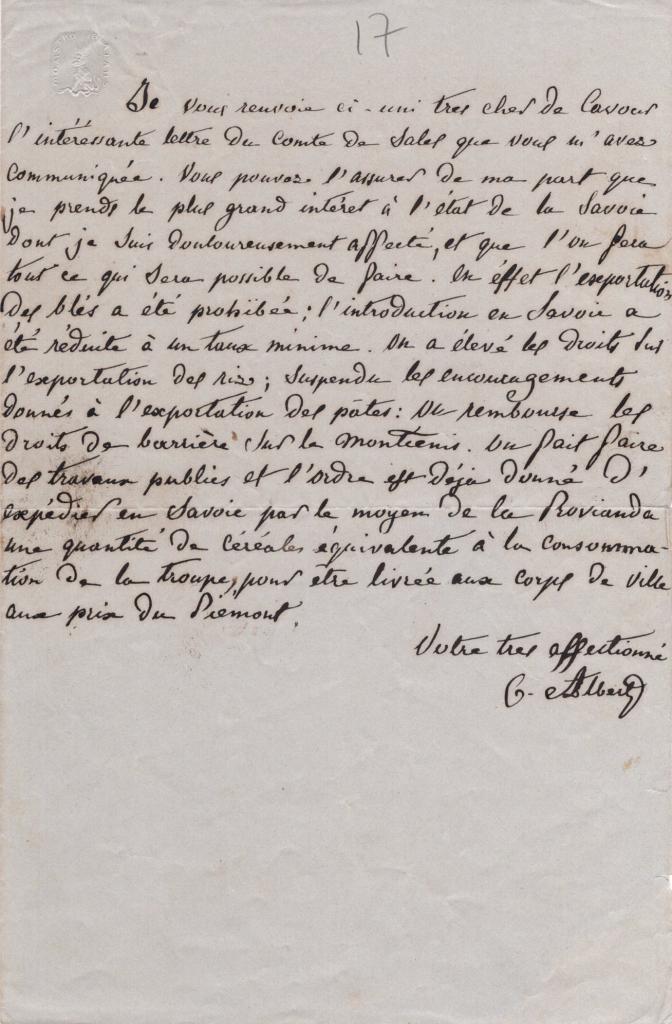 17
Je vous renvoie ci-uni tres cher de Cavour
l'intéressante lettre du Comte de Sales que vous m'avez
communiquée. Vous pouvez l'assurer de ma part que
je prends le plus grand intéret à l'état de la Savoie
dont je suis douloureusement affecté, et que l'on fera
tout ce qui sera possible de faire. En éffet l'exportation
des blés a été prohibée; l'introduction en Savoie a
été réduite à un taux minime. On a élevé les droits sur
l'exportation des riz; suspendu les encouragements
donnés à l'exportation des pâtes: on rembourse les
droits de barrière sur le Montcenis. On fait faire
des travaux publics et l'ordre est déja donné d'
expédier en Savoie par le moyen de la Provianda
une quantité de céréales équivalente à la consomma-
tion de la troupe, pour être livrée aux corps de ville
aux prix du Piemont.
Votre tres affectionné
C. Albert